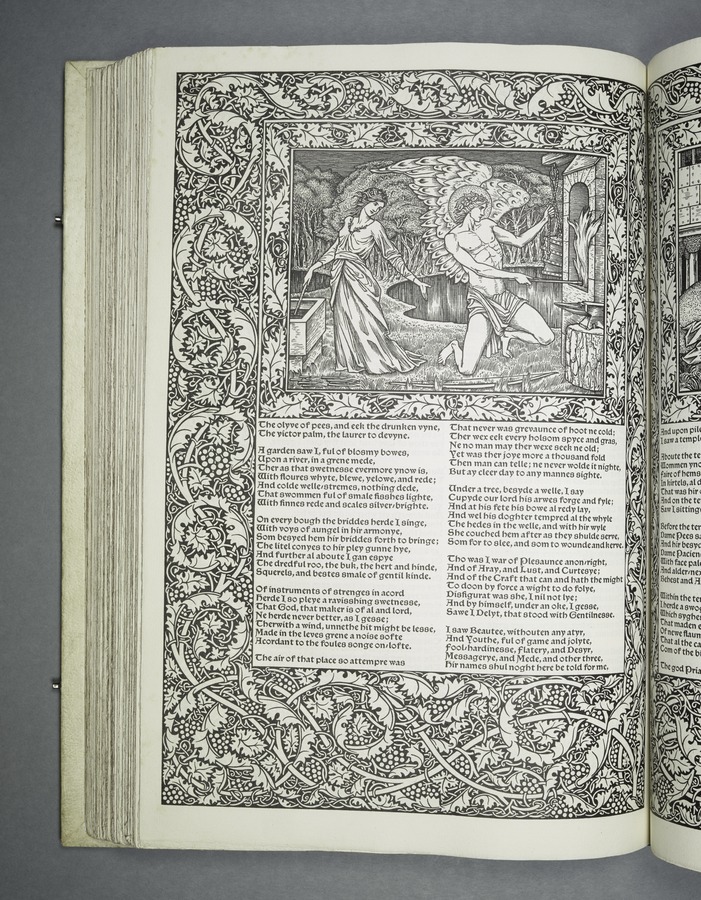 The olyve of pees, and eek the drunken vyne,
The victor palm, the laurer to devyne.
A garden saw I, ful of blosmy bowes,
Upon a river, in a grene mede,
Ther as that swetnesse evermore ynow is,
With floures whyte, blewe, yelowe, and rede;
And colde welle-stremes, nothing dede,
That swommen ful of smale fisshes lighte,
With finnes rede and scales silver-brighte.
On every bough the briddes herde I singe,
With voys of aungel in hir armonye,
Som besyed hem hir briddes forth to bringe;
The litel conyes to hir pley gunne hye,
And further al aboute I gan espye
The dredful roo, the buk, the hert and hinde,
Squerels, and bestes smale of gentil kinde.
Of instruments of strenges in acord
Herde I so pleye a ravisshing swetnesse,
That God, that maker is of al and lord,
Ne herde never better, as I gesse;
Therwith a wind, unnethe hit might be lesse,
Made in the leves grene a noise softe
Acordant to the foules songe on-lofte.
The air of that place so attempre was
That never was grevaunce of hoot ne cold;
Ther wex eek every holsom spyce and gras,
Ne no man may ther wexe seek ne old;
Yet was ther joye more a thousand fold
Then man can telle; ne never wolde it nighte,
But ay cleer day to any mannes sighte.
Under a tree, besyde a welle, I say
Cupyde our lord his arwes forge and fyle;
And at his fete his bowe al redy lay,
And wel his doghter tempred al the whyle
The hedes in the welle, and with hir wyle
She couched hem after as they shulde serve,
Som for to slee, and som to wounde and kerve.
Tho was I war of Plesaunce anon-right,
And of Aray, and Lust, and Curtesye;
And of the Craft that can and hath the might
To doon by force a wight to do folye,
Disfigurat was she, I nil not lye;
And by himself, under an oke, I gesse,
Sawe I Delyt, that stood with Gentilnesse.
I saw Beautee, withouten any atyr,
And Youthe, ful of game and jolyte,
Fool-hardinesse, Flatery, and Desyr,
Messagerye, and Mede, and other three,
Hir names shul noght here be told for me,
And upon pile
I saw a templ
Aboute the te
Wommen yno
Faire of hems
In kirtels, al d
That was hir
And on the te
Saw I sitting
Before the ter
Dame Pees sa
And hir besyd
Dame Pacien
With face pal
And alder-ne
Behest and A
Within the te
I herde a swo
Which sygh
That maden e
Of newe flaum
That al the ca
Com of the bi
The god Pria